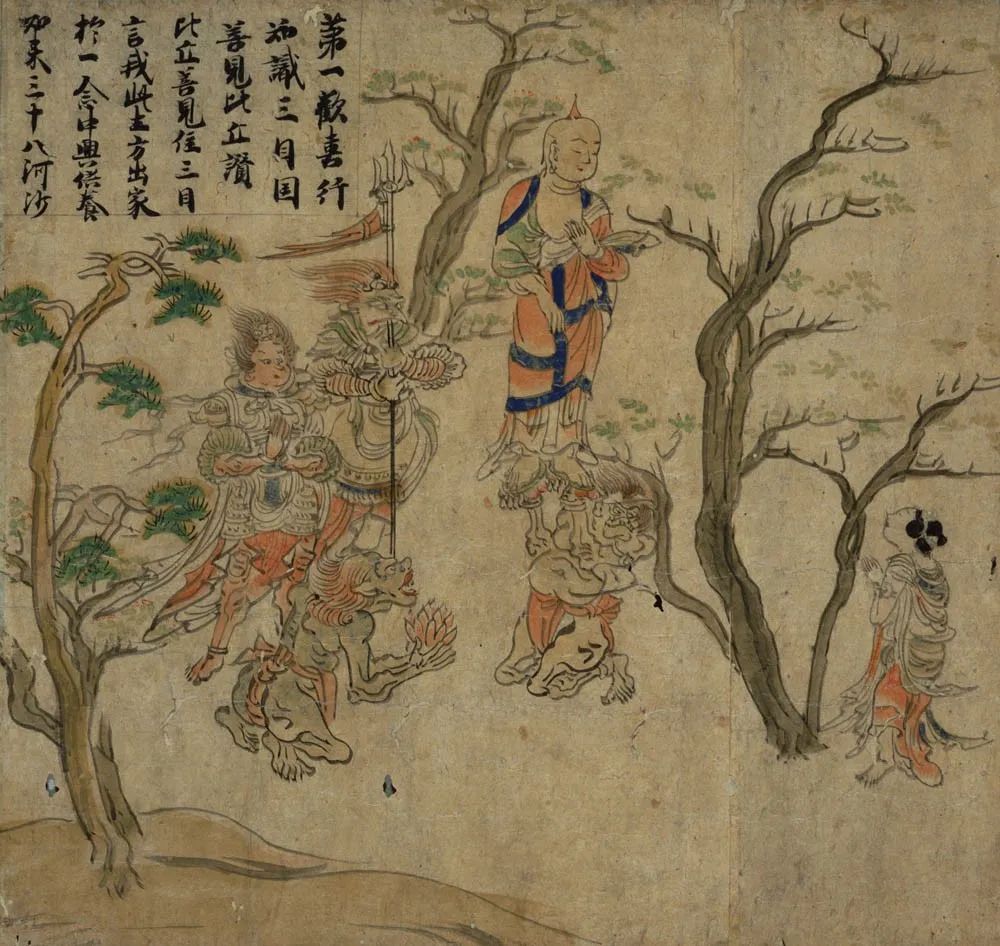 第一歡喜行
知識三目国
善見比丘讚
比丘善見住三目
言我此生方出家
於一念中興供養
如来三十八河沙